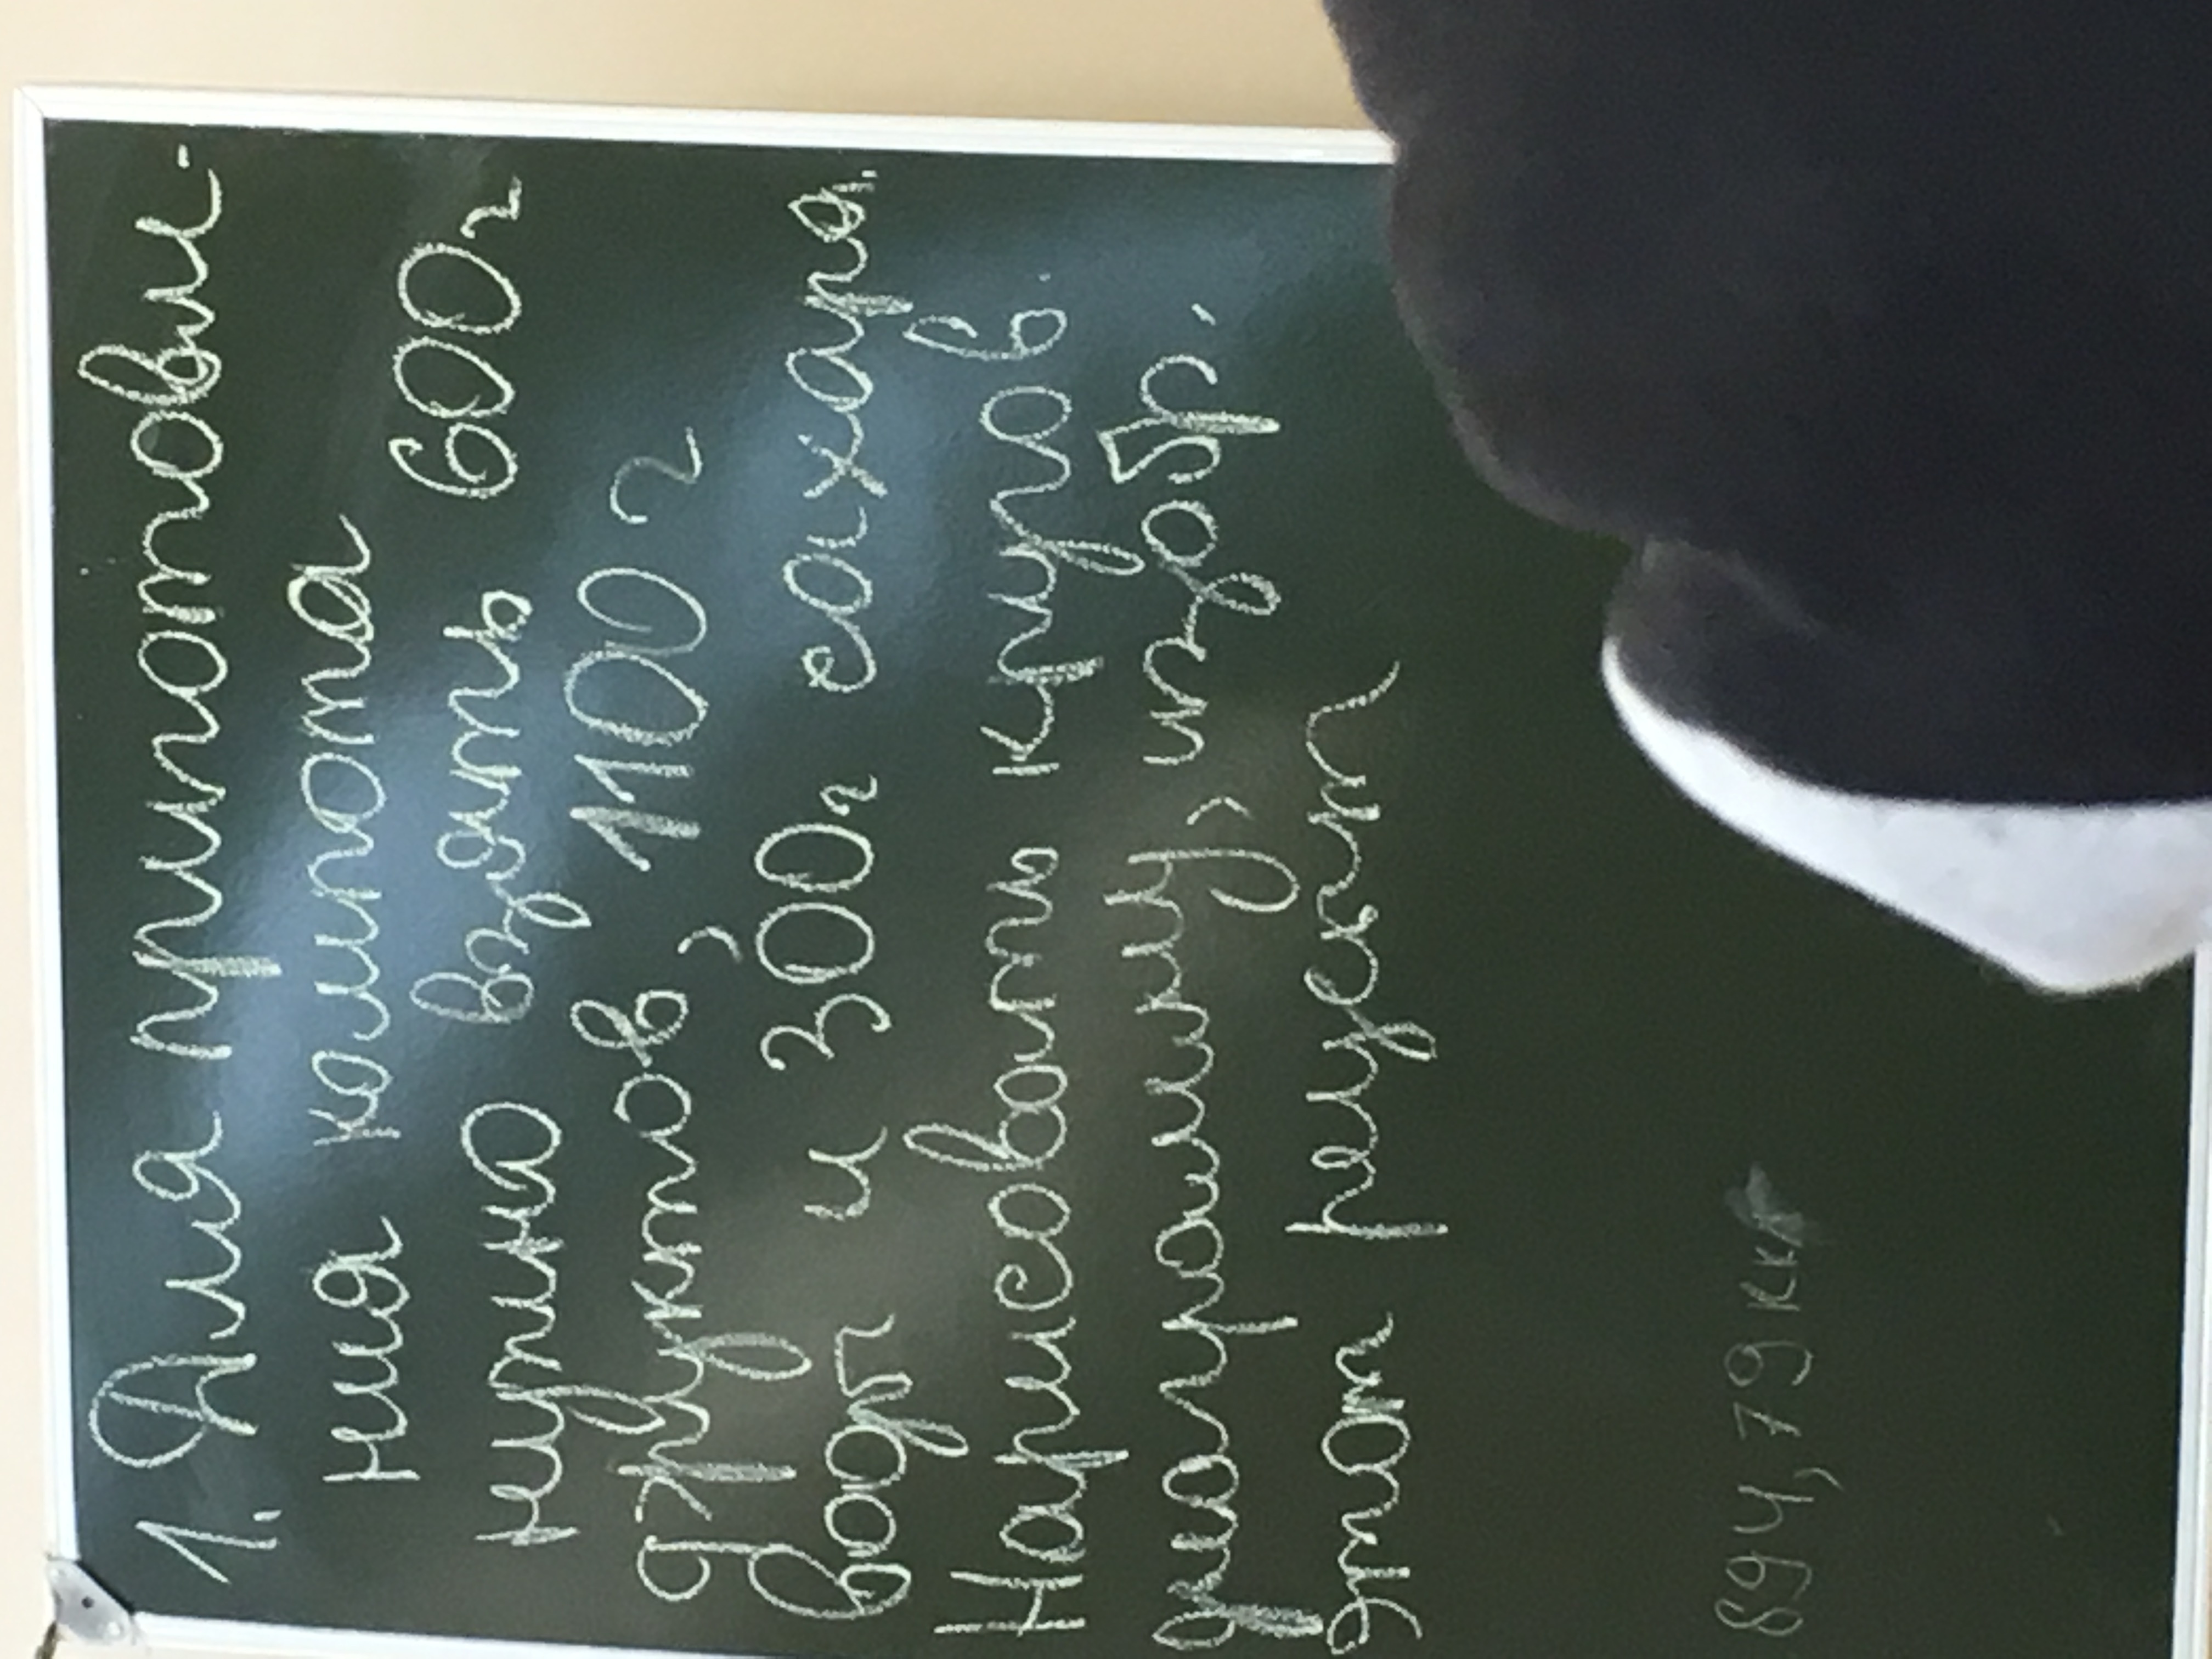 1. Для приготовле-
ния компота
нужно взять 600г
фруктов, 1100 г
воды и 300г сахара.
Нарисовать круговую
диаграмму, изобр.
этот рецепт
894,79 кк